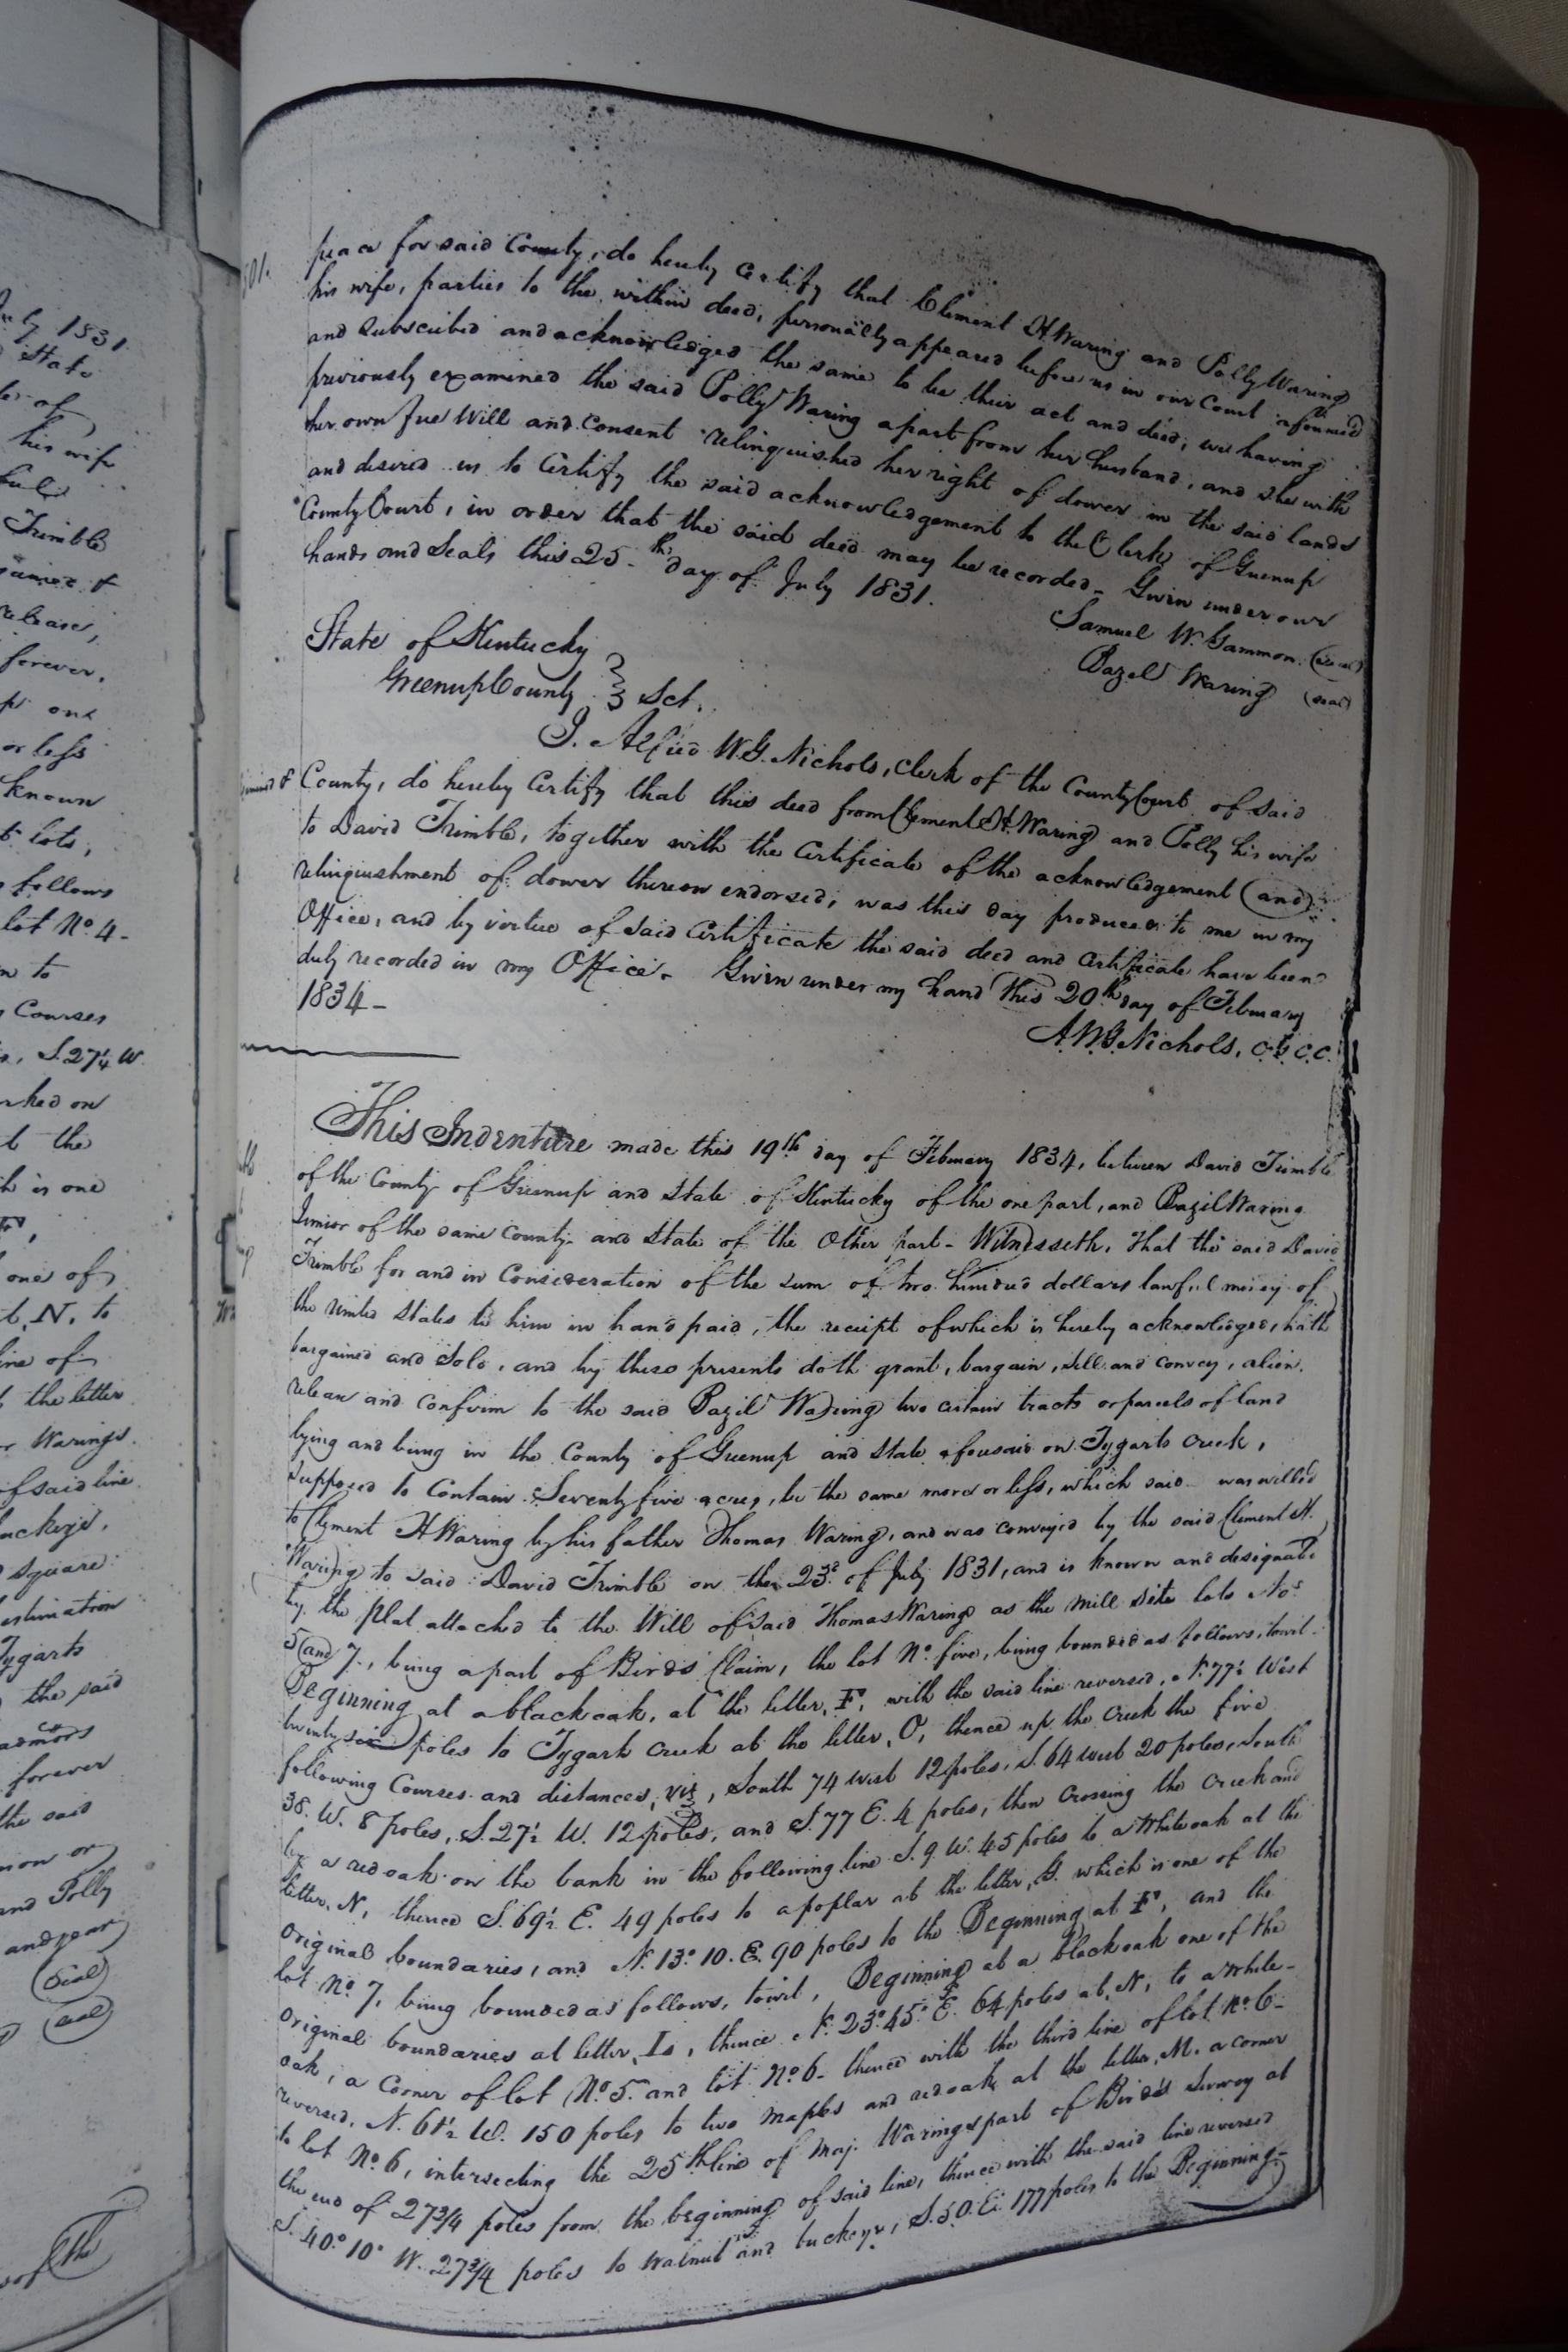 July 1831
State
of
his wife
Trimble
release,
forever,
one
or less
known
lots,
follows
lot No. 4-
to
Courses
S. 27¼ W.
on
the
is one
one of
N, to
line of
the letter
Warings
of said line
buckeye,
square
estimation
Tygarts
the said
admors
forever
the said
or
and Polly
and year
(Seal)
(Seal)
the
peace for said County, do hereby certify that Clement H Waring and Polly Waring
his wife, parties to the within deed, personally appeared before us in our Court aforesaid
and subscribed and acknowledged the same to be their act and deed; we having
previously examined the said Polly Waring apart from her husband, and she with
her own free Will and consent relinquished her right of dower in the said lands
and desired us to Certify the said acknowledgement to the Clerk of Greenup
County Court, in order that the said deed may be recorded - Given under our
hands and Seals this 25th day of July 1831.
Samuel W. Gammon (seal)
Bazel Waring (seal)
State of Kentucky
Greenup County } Sct.
I. Alfred W. G. Nichols, Clerk of the County Court of said
County, do hereby Certify that this deed from Clement H. Waring and Polly his wife
to David Trimble, together with the Certificate of the acknowledgement (and)
relinquishment of dower thereon endorsed, was this day produced to me in my
Office, and by virtue of said Certificate the said deed and certificate have been
duly recorded in my Office - Given under my hand this 20th day of February
1834 -
A.W.G. Nichols, C.G.C.C.
This Indenture made this 19th day of February 1834, between David Trimble
of the County of Greenup and State of Kentucky of the one part, and Bazil Waring
Junior of the same County and State of the Other part - Witnesseth, That the said David
Trimble for and in Consideration of the sum of two hundred dollars lawful money of
the united States to him in hand paid, the receipt of which is hereby acknowledged, hath
bargained and Sold, and by these presents doth grant, bargain, sell and convey, alien,
release and confirm to the said Bazil Waring two certain tracts or parcels of land
lying and being in the County of Greenup and State aforesaid on Tygarts creek,
supposed to Contain Seventy five acres, be the same more or less, which said was willed
to Clement H Waring by his father Thomas Waring, and was conveyed by the said Clement H.
Waring to said David Trimble on the 23d of July 1831, and is known and designated
by the plat attached to the Will of said Thomas Waring as the mill site lots Nos
5 and 7., being a part of Birds Claim, the lot No. five, being bounded as follows, towit -
Beginning at a black oak, at the letter, F, with the said line reversed, N. 77½ West
twenty six poles to Tygarts creek at the letter, O, thence up the creek the five
following Courses and distances, viz, South 74 west 12 poles, S. 64 west 20 poles, South
38. W. 8 poles, S. 27½ W. 12 poles, and S. 77 E. 4 poles, then crossing the creek and
by a red oak on the bank in the following line S. 9 W. 45 poles to a White oak at the
letter, N, thence S. 69½ E. 49 poles to a poplar at the letter, G. which is one of the
original boundaries, and N. 13° 10. E. 90 poles to the Beginning at F, and the
lot No. 7, being bounded as follows, towit, Beginning at a black oak one of the
original boundaries at letter, I, thence N. 23° 45° E. 64 poles at, N, to a white-
oak, a corner of lot No. 5. and lot No. 6 - thence with the third line of lot No. 6 -
reversed, N. 61½ W. 150 poles to two maples and red oak at the letter, M. a corner
to lot No. 6, intersecting the 25th line of Maj. Warings part of Birds Survey at
the end of 27¾ poles from the beginning of said line, thence with the said line reversed
S. 40° 10° W. 27¾ poles to walnut and buckeye, S. 50. E. 177 poles to the Beginning -